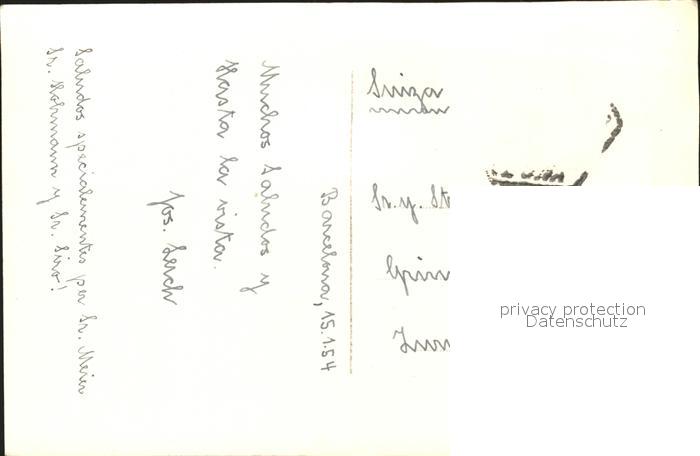 Barcelona, 15.1.54
Muchos Saludos y
Hasta la vista.
Jos. Lerch
Saludos specialementes per Sr. Meier
Sr. y Sr. Siro!
Suiza
Sr. y.
privacy protection
Datenschutz